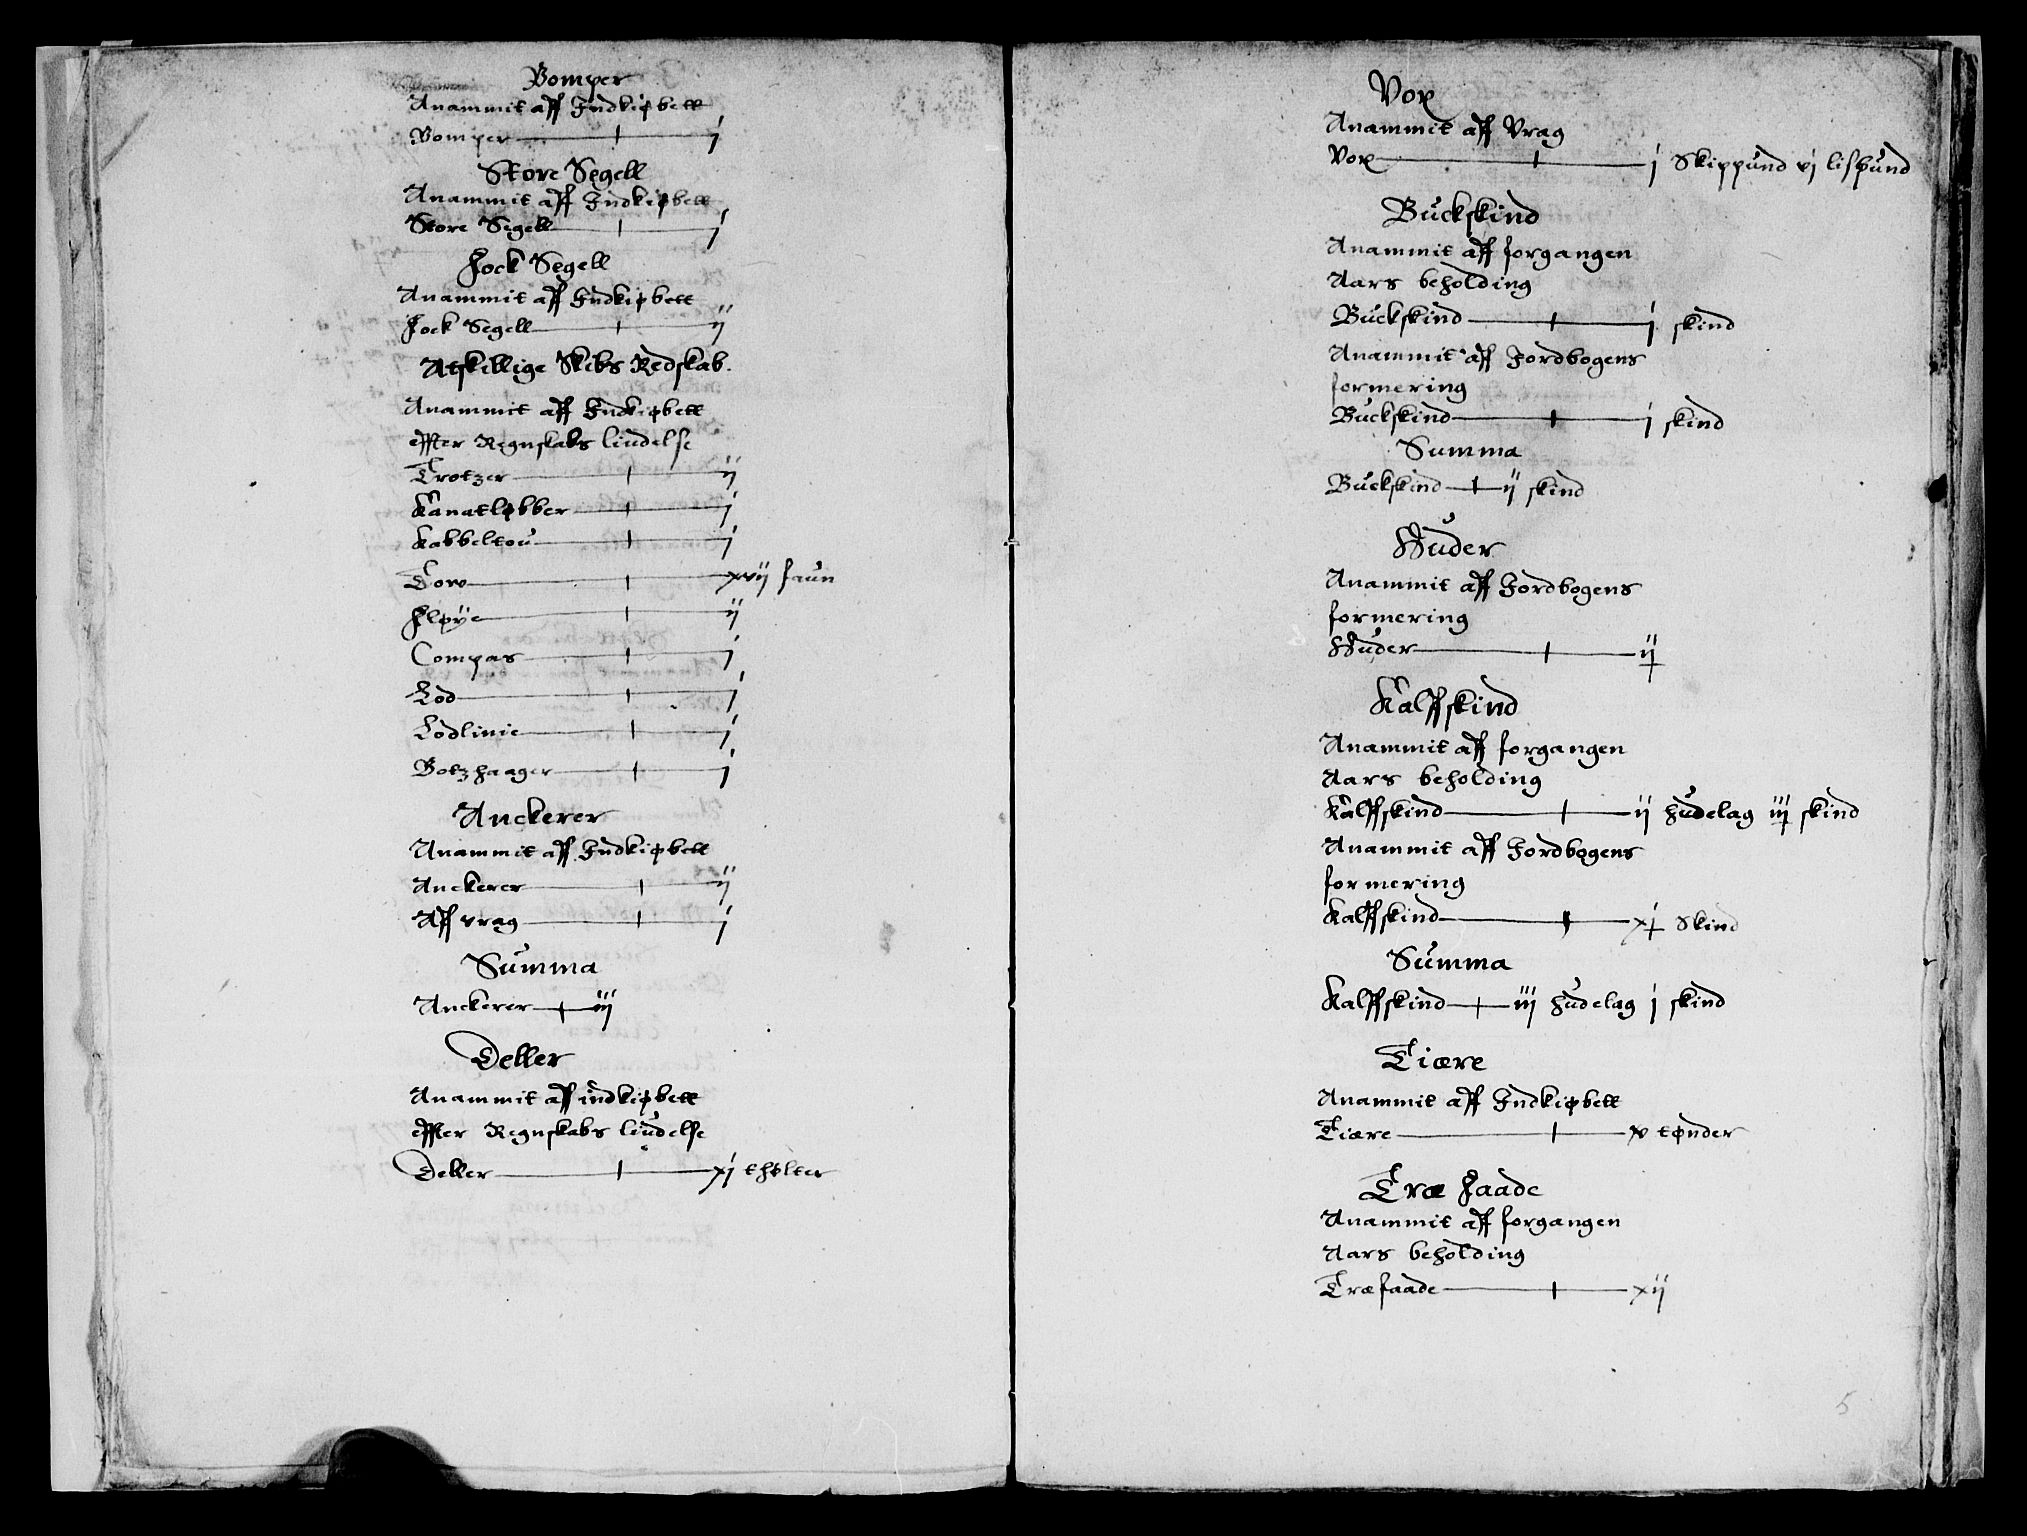 Bomper
Anammit aff Indkiøbett
Bomper j
Store Segell
Anammit aff Indkiøbett
Store Segell j
Fock Segell
Anammit aff Indkiøbett
Fock Segell ij
Atskillige Skibs Redskab.
Anammit aff Indkiøbett
effter Regnskabs liudelse
Trotzer ij
Kanatløbber j
Kabbeltou j
Tow xvij faun
Fløye ij
Compas j
Lod j
Lodlinie j
Botzhaager j
Anckerer
Anammit aff Indkiøbett
Anckerer ij
Aff vrag j
Summa
Anckerer iij
Deller
Anammit aff indkiøbett
effter Regnskabs liudelse
Deller xj thølter
Vox
Anammit aff Vrag
Vox j Skippund vj lispund
Buckskind
Anammit aff forgangen
Aars beholding
Buckskind j skind
Anammit aff Jordbogens
formering
Buckskind j skind
Summa
Buckskind ij skind
Huder
Anammit aff Jordbogens
formering
Huder ij
Kalffskind
Anammit aff forgangen
Aars beholding
Kalffskind ij hudelag iij skind
Anammit aff Jordbogens
formering
Kalffskind xj Skind
Summa
Kalffskind iij hudelag j skind
Tiære
Anammit aff Indkiøbett
Tiære xv tønder
Træ Faade
Anammit aff forgangen
Aars beholding
Træfaade xij
5